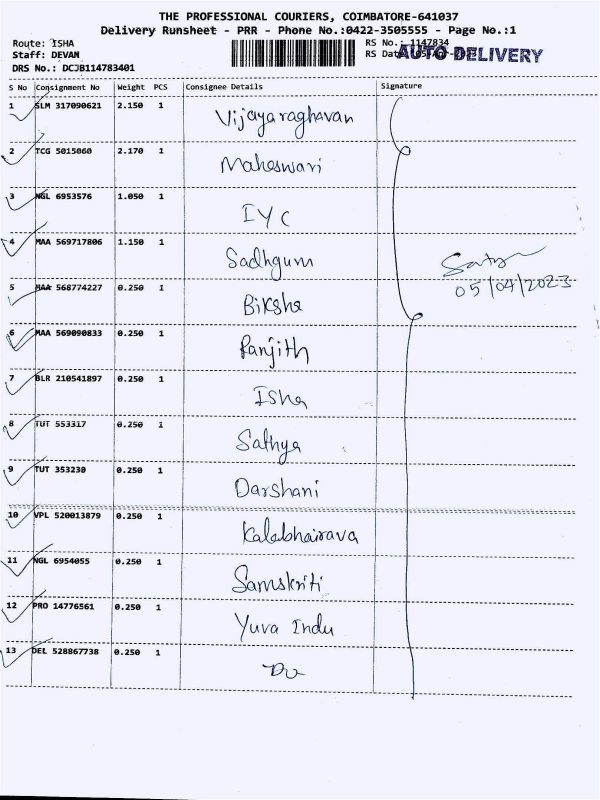 THE PROFESSIONAL COURIERS, COIMBATORE-641037
Delivery Runsheet - PRR - Phone No.:0422-3505555 - Page No.:1
Route: ISHA
RS No.: 1147834
Staff: DEVAN
RS Date: 05-Apr-2023
AUTO DELIVERY
DRS No.: DCJB114783401
S No Consignment No Weight PCS Consignee Details Signature
1 SLM 317090621 2.150 1 Vijayaraghavan
2 TCG 5015060 2.170 1 Maheswari
3 NGL 6953576 1.050 1 IYC
4 MAA 569717806 1.150 1 Sadhguru
05/04/2023
5 MAA 568774227 0.250 1 Biksha
6 MAA 569090833 0.250 1 Ranjith
7 BLR 210541897 0.250 1 Isha
8 TUT 553317 0.250 1 Sathya
9 TUT 353230 0.250 1 Darshani
10 VPL 520013879 0.250 1 Kalabhairava
11 NGL 6954055 0.250 1 Samskriti
12 PRO 14776561 0.250 1 Yuva Indu
13 DEL 528867738 0.250 1